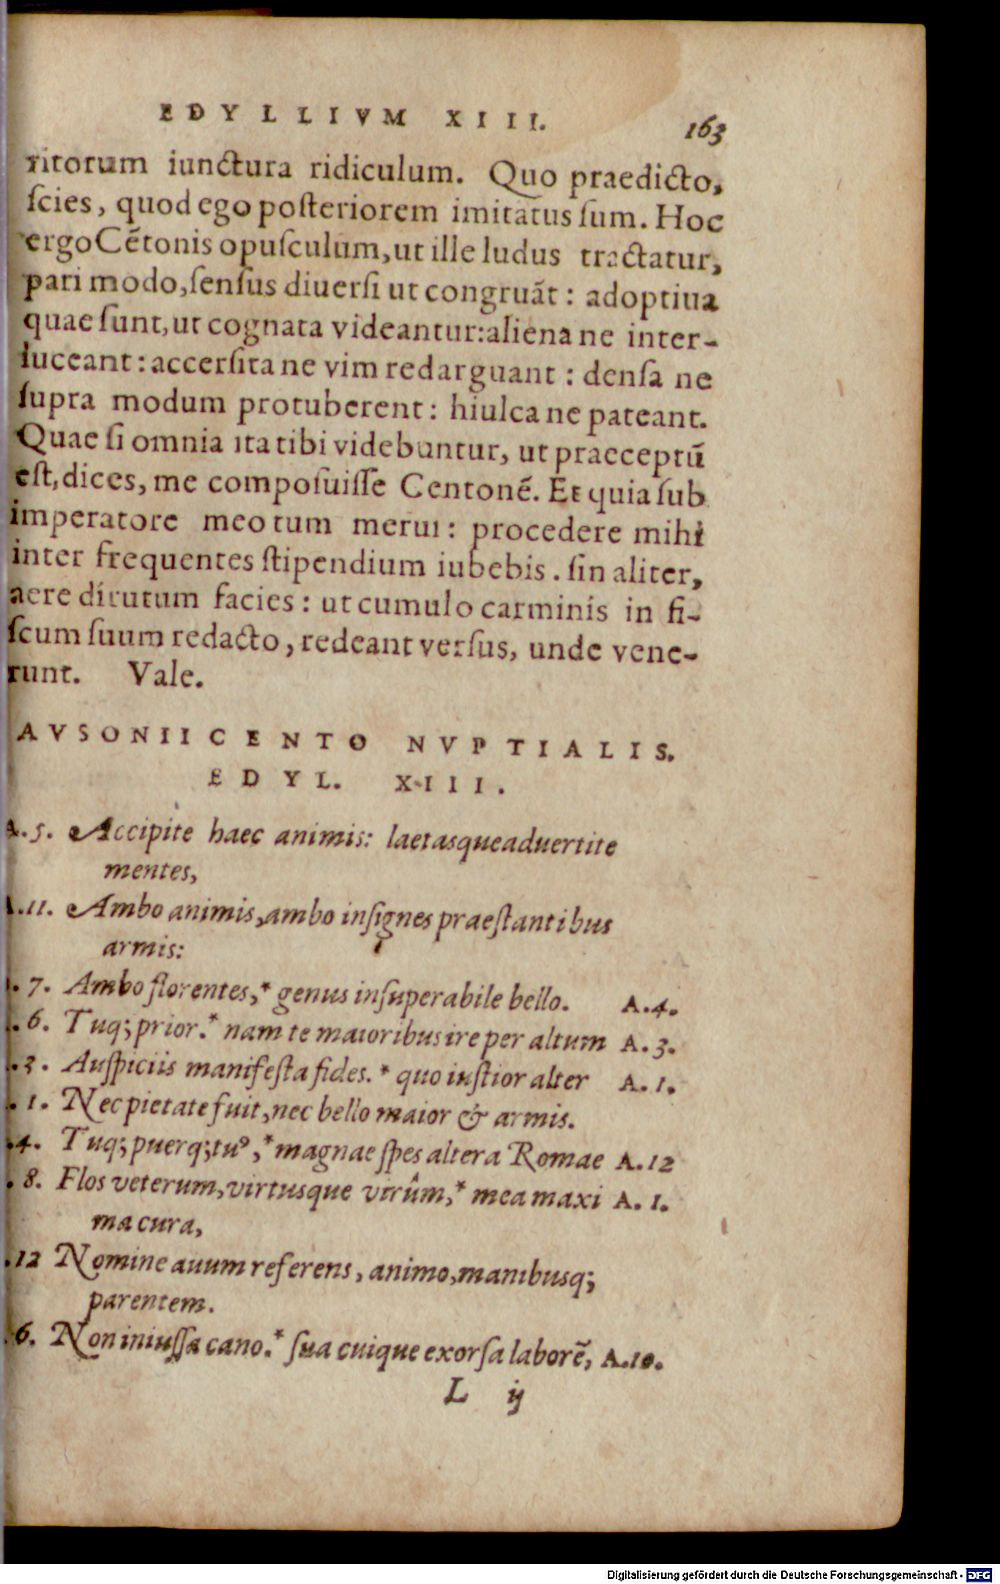 EDYLLIVM XIII. 163
ritorum iunctura ridiculum. Quo praedicto,
scies, quod ego posteriorem imitatus sum. Hoc
ergo Cẽtonis opusculum, ut ille ludus tractatur,
pari modo, sensus diuersi ut congruãt: adoptiua
quae sunt, ut cognata videantur: aliena ne inter-
luceant: accersita ne vim redarguant: densa ne
supra modum protuberent: hiulca ne pateant.
Quae si omnia ita tibi videbuntur, ut praeceptũ
est, dices, me composuisse Centonẽ. Et quia sub
imperatore meo tum merui: procedere mihi
inter frequentes stipendium iubebis. sin aliter,
aere dirutum facies: ut cumulo carminis in fi-
scum suum redacto, redeant versus, unde vene-
runt. Vale.
AVSONII CENTO NVPTIALIS.
EDYL. XIII.
A.5. Accipite haec animis: laetasque aduertite
mentes,
A.11. Ambo animis, ambo insignes praestantibus
armis:
. 7. Ambo florentes,* genus insuperabile bello. A.4.
. 6. Tuq; prior.* nam te maioribus ire per altum A.3.
. 3. Auspiciis manifesta fides.* quo iustior alter A.1.
. 1. Nec pietate fuit, nec bello maior & armis.
.4. Tuq; puerq; tuꝰ,* magnae spes altera Romae A.12
. 8. Flos veterum, virtusque virûm,* mea maxi A.1.
ma cura,
.12 Nomine auum referens, animo, manibusq;
parentem.
. 6. Non iniussa cano.* sua cuique exorsa laborẽ, A.10.
L ij
Digitalisierung gefördert durch die Deutsche Forschungsgemeinschaft - DFG